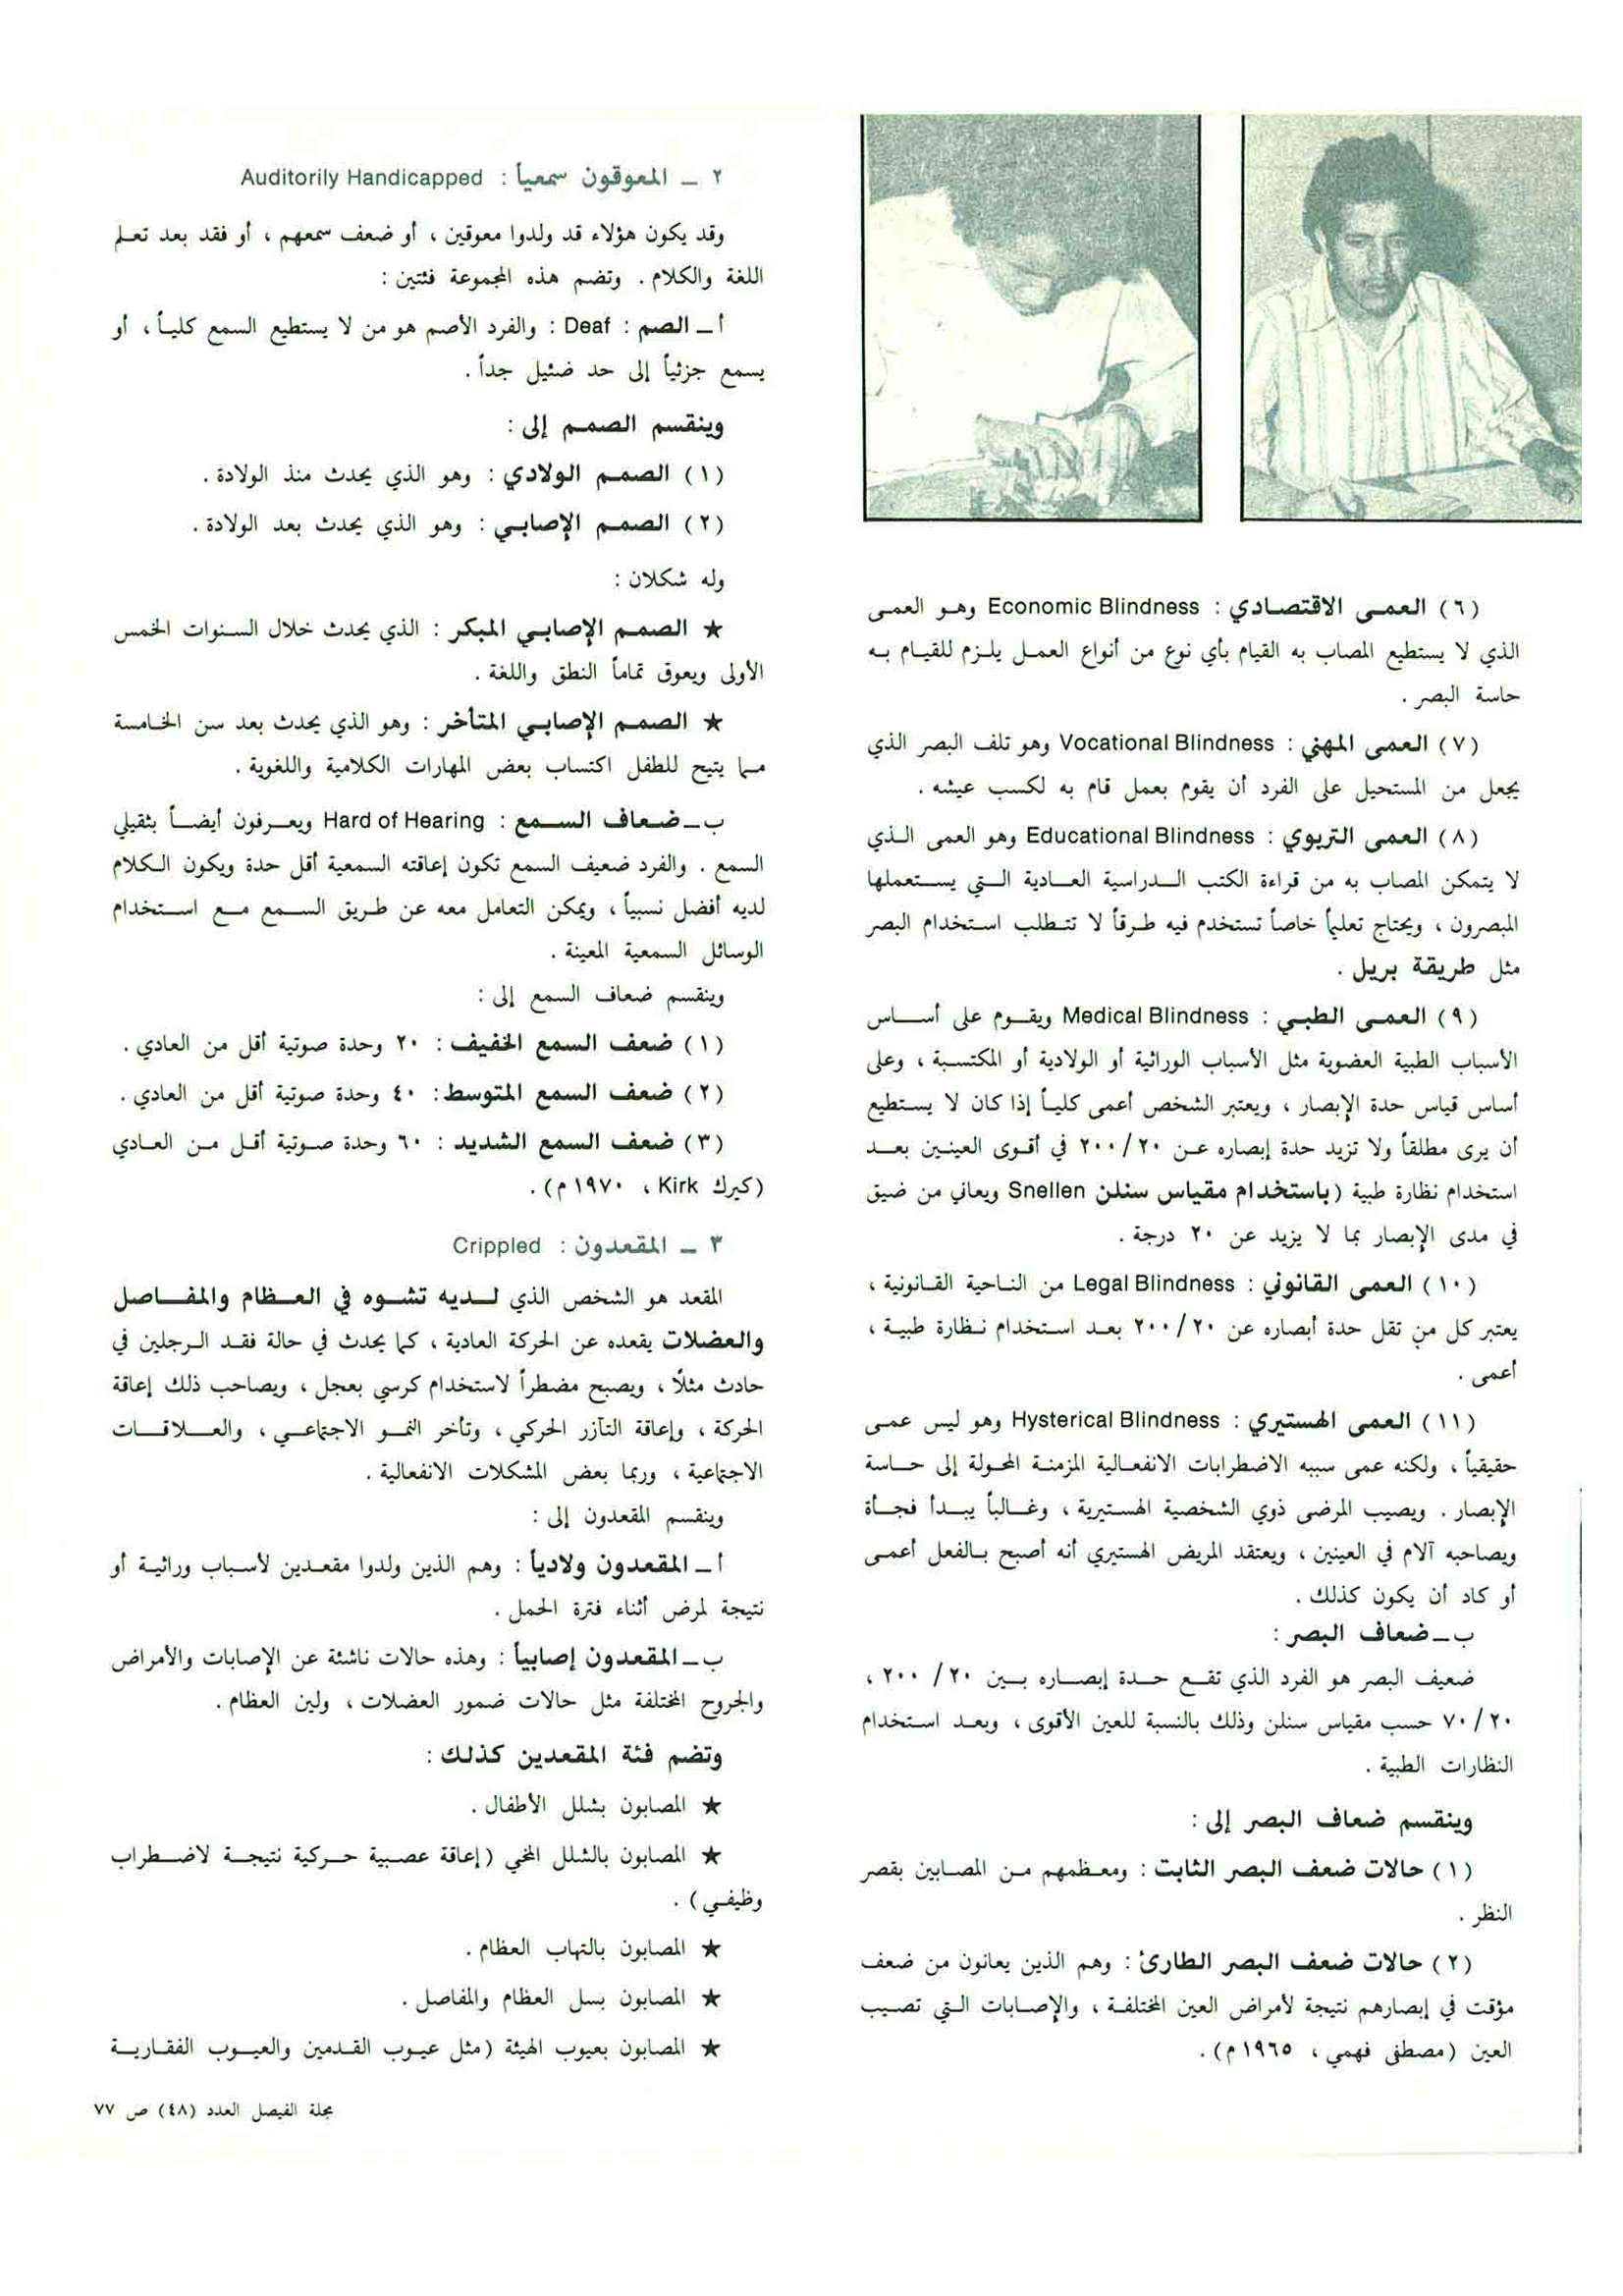 (٦) العمى الاقتصادي : Economic Blindness وهو العمى
الذي لا يستطيع المصاب به القيام بأي نوع من أنواع العمل يلزم للقيام به
حاسة البصر .
(٧) العمى المهني : Vocational Blindness وهو تلف البصر الذي
يجعل من المستحيل على الفرد أن يقوم بعمل قام به لكسب عيشه .
(٨) العمى التربوي : Educational Blindness وهو العمى الذي
لا يتمكن المصاب به من قراءة الكتب الدراسية العادية التي يستعملها
المبصرون ، ويحتاج تعليماً خاصاً تستخدم فيه طرقاً لا تتطلب استخدام البصر
مثل طريقة بريل .
(٩) العمى الطبي : Medical Blindness ويقوم على أساس
الأسباب الطبية العضوية مثل الأسباب الوراثية أو الولادية أو المكتسبة ، وعلى
أساس قياس حدة الإبصار ، ويعتبر الشخص أعمى كلياً إذا كان لا يستطيع
أن يرى مطلقاً ولا تزيد حدة إبصاره عن ٢٠٠/٢٠ في أقوى العينين بعد
استخدام نظارة طبية (باستخدام مقياس سنلن Snellen ويعاني من ضيق
في مدى الإبصار بما لا يزيد عن ٢٠ درجة .
(١٠) العمى القانوني : Legal Blindness من الناحية القانونية ،
يعتبر كل من تقل حدة أبصاره عن ٢٠٠/٢٠ بعد استخدام نظارة طبية ،
أعمى .
(١١) العمى الهستيري : Hysterical Blindness وهو ليس عمى
حقيقياً ، ولكنه عمى سببه الاضطرابات الانفعالية المزمنة المحولة إلى حاسة
الإبصار . ويصيب المرضى ذوي الشخصية الهستيرية ، وغالباً يبدأ فجأة
ويصاحبه آلام في العينين ، ويعتقد المريض الهستيري أنه أصبح بالفعل أعمى
أو كاد أن يكون كذلك .
ب ـ ضعاف البصر :
ضعيف البصر هو الفرد الذي تقع حدة إبصاره بين ٢٠٠/٢٠ ،
٧٠/٢٠ حسب مقياس سنلن وذلك بالنسبة للعين الأقوى ، وبعد استخدام
النظارات الطبية .
وينقسم ضعاف البصر إلى :
(١) حالات ضعف البصر الثابت : ومعظمهم من المصابين بقصر
النظر .
(٢) حالات ضعف البصر الطارئ : وهم الذين يعانون من ضعف
مؤقت في إبصارهم نتيجة لأمراض العين المختلفة ، والإصابات التي تصيب
العين (مصطفى فهمي ، ١٩٦٥ م) .
٢ ـ المعوقون سمعياً : Auditorily Handicapped
وقد يكون هؤلاء قد ولدوا معوقين ، أو ضعف سمعهم ، أو فقد بعد تعلم
اللغة والكلام . وتضم هذه المجموعة فئتين :
أ ـ الصم : Deaf : والفرد الأصم هو من لا يستطيع السمع كلياً ، أو
يسمع جزئياً إلى حد ضئيل جداً .
وينقسم الصمم إلى :
(١) الصمم الولادي : وهو الذي يحدث منذ الولادة .
(٢) الصمم الإصابي : وهو الذي يحدث بعد الولادة .
وله شكلان :
★ الصمم الإصابي المبكر : الذي يحدث خلال السنوات الخمس
الأولى ويعوق تماماً النطق واللغة .
★ الصمم الإصابي المتأخر : وهو الذي يحدث بعد سن الخامسة
مما يتيح للطفل اكتساب بعض المهارات الكلامية واللغوية .
ب ـ ضعاف السمع : Hard of Hearing ويعرفون أيضاً بثقيلي
السمع . والفرد ضعيف السمع تكون إعاقته السمعية أقل حدة ويكون الكلام
لديه أفضل نسبياً ، ويمكن التعامل معه عن طريق السمع مع استخدام
الوسائل السمعية المعينة .
وينقسم ضعاف السمع إلى :
(١) ضعف السمع الخفيف : ٢٠ وحدة صوتية أقل من العادي .
(٢) ضعف السمع المتوسط : ٤٠ وحدة صوتية أقل من العادي .
(٣) ضعف السمع الشديد : ٦٠ وحدة صوتية أقل من العادي
(كيرك Kirk ، ١٩٧٠ م) .
٣ ـ المقعدون : Crippled
المقعد هو الشخص الذي لديه تشوه في العظام والمفاصل
والعضلات يقعده عن الحركة العادية ، كما يحدث في حالة فقد الرجلين في
حادث مثلاً ، ويصبح مضطراً لاستخدام كرسي بعجل ، ويصاحب ذلك إعاقة
الحركة ، وإعاقة التآزر الحركي ، وتأخر النمو الاجتماعي ، والعلاقات
الاجتماعية ، وربما بعض المشكلات الانفعالية .
وينقسم المقعدون إلى :
أ ـ المقعدون ولادياً : وهم الذين ولدوا مقعدين لأسباب وراثية أو
نتيجة لمرض أثناء فترة الحمل .
ب ـ المقعدون إصابياً : وهذه حالات ناشئة عن الإصابات والأمراض
والجروح المختلفة مثل حالات ضمور العضلات ، ولين العظام .
وتضم فئة المقعدين كذلك :
★ المصابون بشلل الأطفال .
★ المصابون بالشلل المخي (إعاقة عصبية حركية نتيجة لاضطراب
وظيفي) .
★ المصابون بالتهاب العظام .
★ المصابون بسل العظام والمفاصل .
★ المصابون بعيوب الهيئة (مثل عيوب القدمين والعيوب الفقارية
مجلة الفيصل العدد (٤٨) ص ٧٧